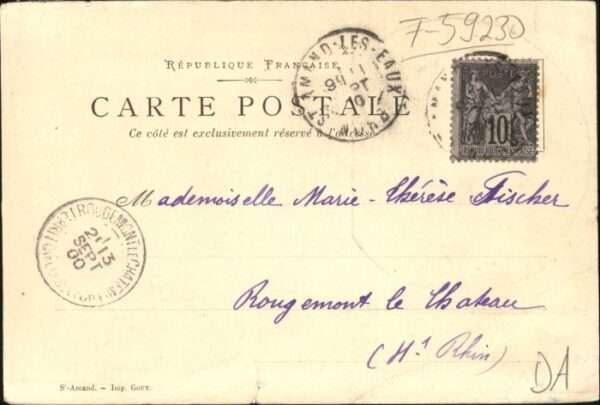 F-59230
RÉPUBLIQUE FRANÇAISE
CARTE POSTALE
Ce côté est exclusivement réservé à l'adresse
ST AMAND-LES-EAUX
POSTE
10
RÉPUBLIQUE FRANÇAISE
Mademoiselle Marie-Thérèse Fischer
ROUGEMONT LE CHATEAU
13
SEPT
00
Rougemont le Chateau
(Ht Rhin)
DA
St-Amand. — Imp. Gouy.